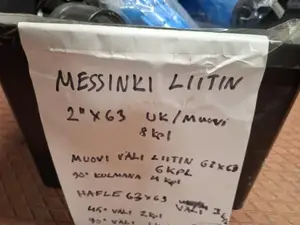 MESSINKI LIITIN
2" X 63 UK/MUOVI
8 kpl
MUOVI VÄLI LIITIN 63 X 63
6 KPL
90° KULMANA 4 kpl
HAFLE 63 X 63 VÄLI
45° VÄLI 2 kpl
90° VÄLI